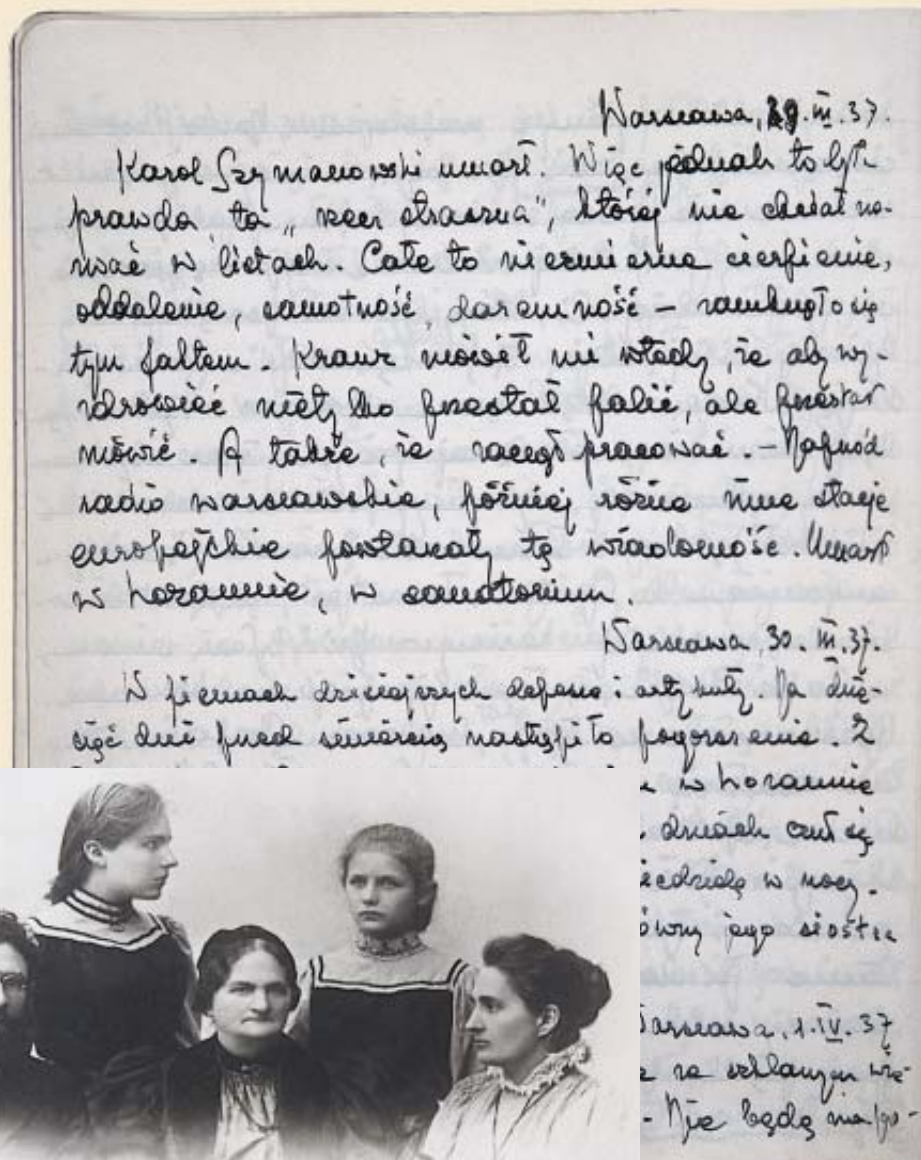 Warszawa, 29. III. 37.
Karol Szymanowski umarł. Więc jednak to była
prawda ta „rzecz straszna", której nie chciał na-
zwać w listach. Całe to niezmierne cierpienie,
oddalenie, samotność, daremność – zamknęło się
tym faktem. Kranz mówił mi wtedy, że aby wy-
zdrowieć nietylko przestał palić, ale przestał
mówić. A także, że zaczął pracować. – Naprzód
radio warszawskie, później różne inne stacje
europejskie powtarzały tę wiadomość. Umarł
w Lozannie, w sanatorium.
Warszawa, 30. III. 37.
W pismach dzisiejszych depesze i artykuły. Na dzie-
sięć dni przed śmiercią nastąpiło pogorszenie. Z
w Lozannie
dniach czuł się
iedzielę w nocy.
jego siostra
Warszawa, 1. IV. 37
za szklanym wie-
- Nie będą mia